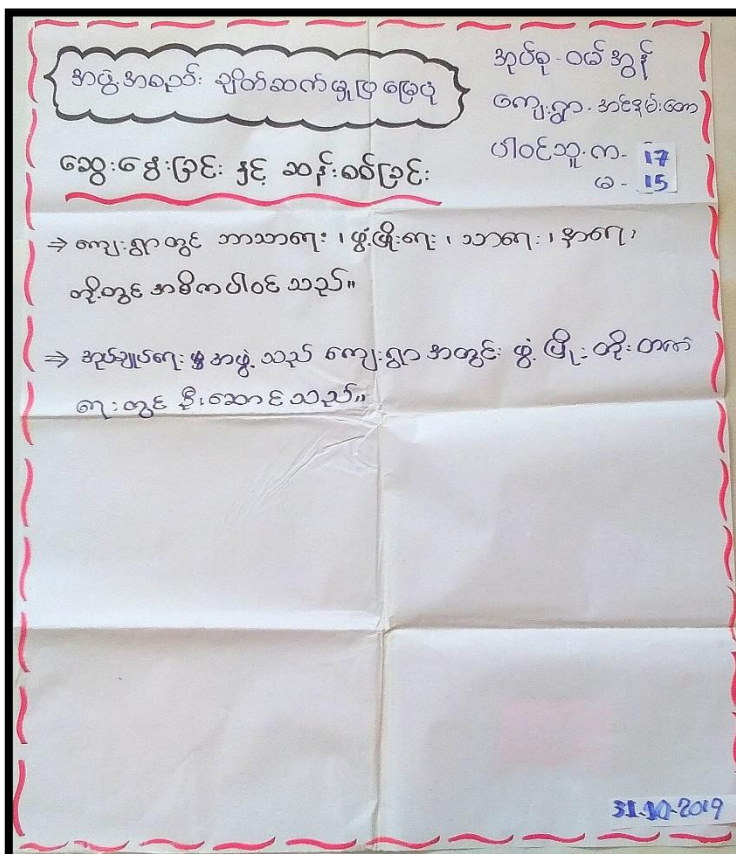 အဖွဲ့အစည်း ချိတ်ဆက်မှုပြ မြေပုံ
အုပ်စု - ဝယ်အွန်
ကျေးရွာ - အင်နမ်းတော
ပါဝင်သူ က - 17
မ - 15
ဆွေးနွေးခြင်း နှင့် ဆန်းစစ်ခြင်း
⇒ ကျေးရွာတွင် ဘာသာရေး ၊ ဖွံ့ဖြိုးရေး ၊ သာရေး ၊ နာရေး
တို့တွင် အဓိကပါဝင် သည်။
⇒ အုပ်ချုပ်ရေး အဖွဲ့ သည် ကျေးရွာ အတွင်း ဖွံ့ ဖြိုး တိုး တက်
ရေး တွင် ဦးဆောင် သည်။
31-10-2019